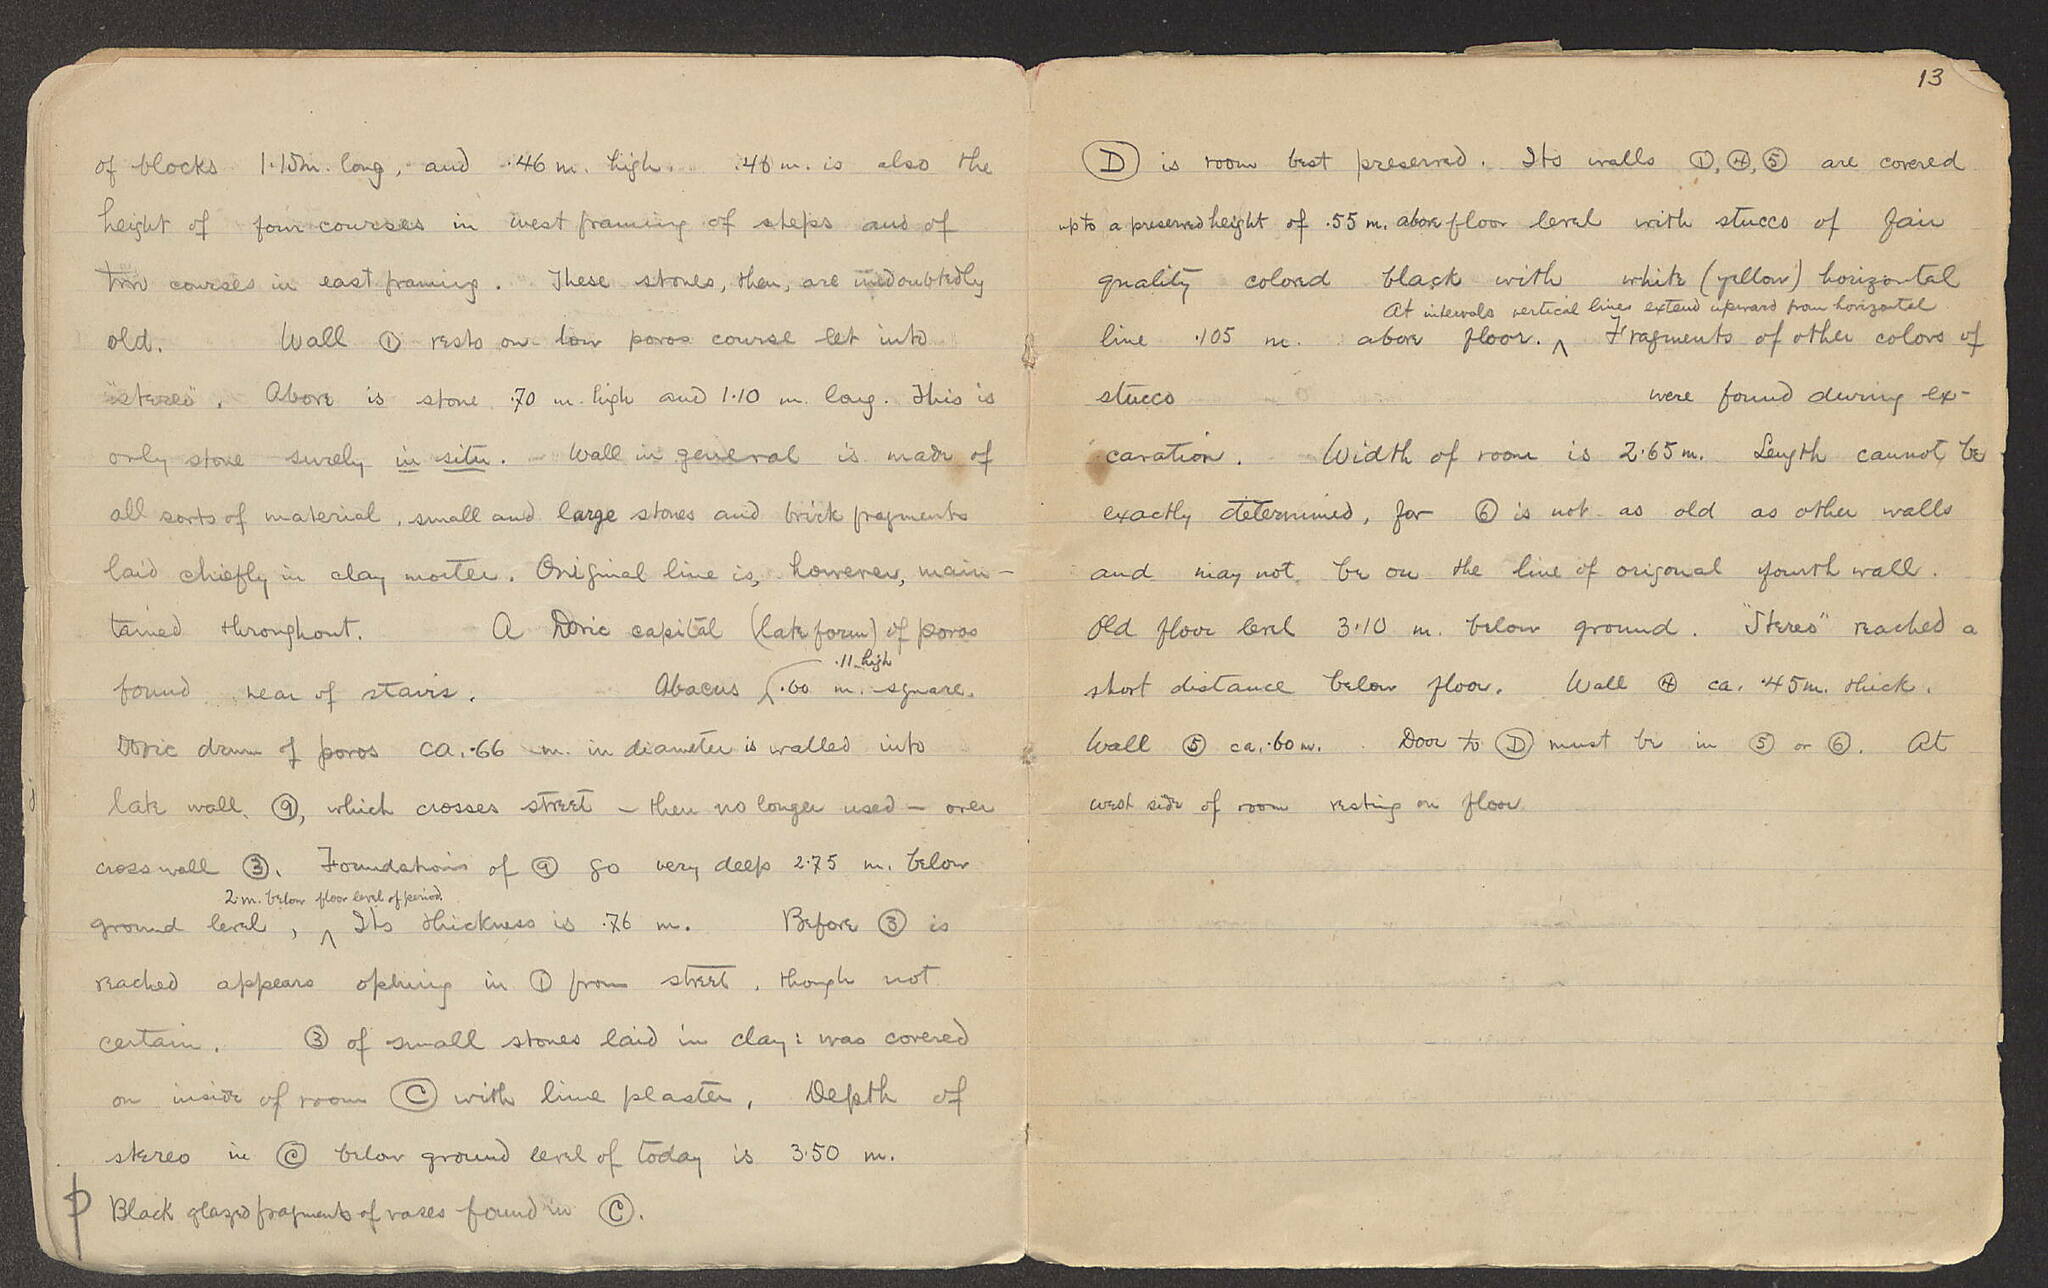 of blocks 1.15m. long, and .46 m. high. .46 m. is also the
height of four courses in west framing of steps and of
two courses in east framing. These stones, then, are undoubtedly
old. Wall ① rests on low poros course let into
"stereo". Above is stone .70 m. high and 1.10 m. long. This is
only stone surely in situ. Wall in general is made of
all sorts of material, small and large stones and brick fragments
laid chiefly in clay morter. Original line is, however, main-
tained throughout. A Doric capital (late form) of poros
found near of stairs.
.11 high
Abacus ^ .60 m. square.
Doric drum of poros ca. .66 m. in diameter is walled into
late wall ⑨, which crosses street – then no longer used – over
cross wall ③. Foundations of ⑨ go very deep 2.75 m. below
2 m. below floor level of period.
ground level, ^ Its thickness is .76 m. Before ③ is
reached appears opning in ① from street, though not
certain. ③ of small stones laid in clay: was covered
on inside of room Ⓒ with lime plaster. Depth of
stereo in Ⓒ below ground level of today is 3.50 m.
Black glazed fragments of vases found in Ⓒ.
13
Ⓓ is room best preserved. Its walls ①, ④, ⑤ are covered
up to a preserved height of .55 m. above floor level with stucco of fair
quality colored black with white (yellow) horizontal
At intervals vertical lines extend upward from horizontal
line .105 m. above floor. ^ Fragments of other colors of
stucco were found during ex-
cavation. Width of room is 2.65 m. Length cannot be
exactly determined, for ⑥ is not as old as other walls
and may not be on the line of original fourth wall.
Old floor level 3.10 m. below ground. "Stereo" reached a
short distance below floor. Wall ④ ca. .45 m. thick.
Wall ⑤ ca. .60 m. Door to Ⓓ must be in ⑤ or ⑥. At
west side of room resting on floor